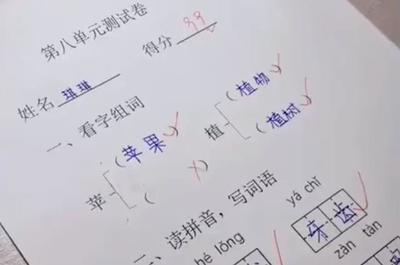 第八单元测试卷
姓名 琪琪 得分 99
一、看字组词
苹 (苹果) ( ) 植 (植物) (植树)
二、读拼音，写词语
hé lǒng yá chǐ
牙齿
zàn tàn